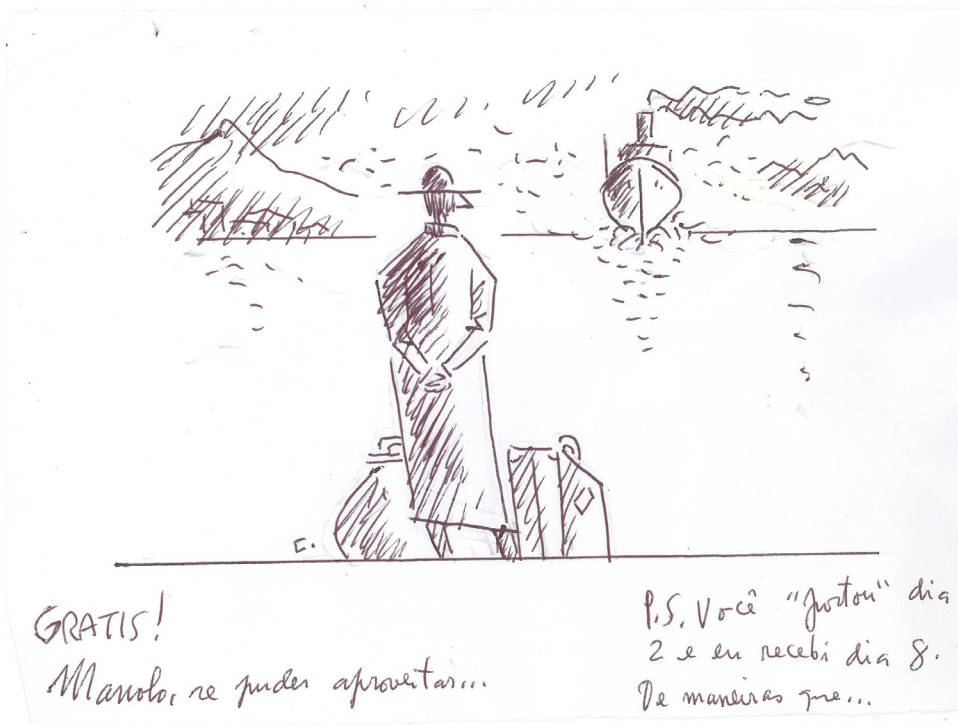 C.
GRATIS!
Manolo, se puder aproveitar...
P.S. Você "postou" dia
2 e eu recebi dia 8.
De maneiras que...